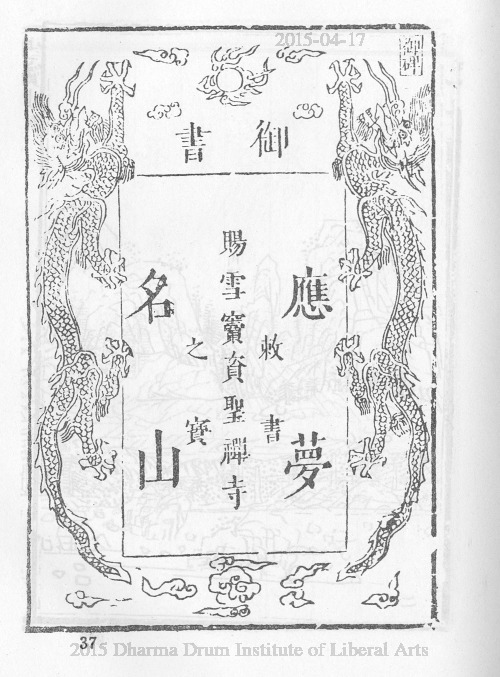 2015-04-17
御碑
御書
應夢
敕書
賜雪竇資聖禪寺
之寶
名山
37
2015 Dharma Drum Institute of Liberal Arts